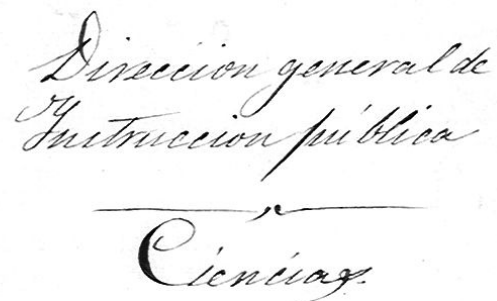 Direccion general de
Instruccion pública
Ciencias.